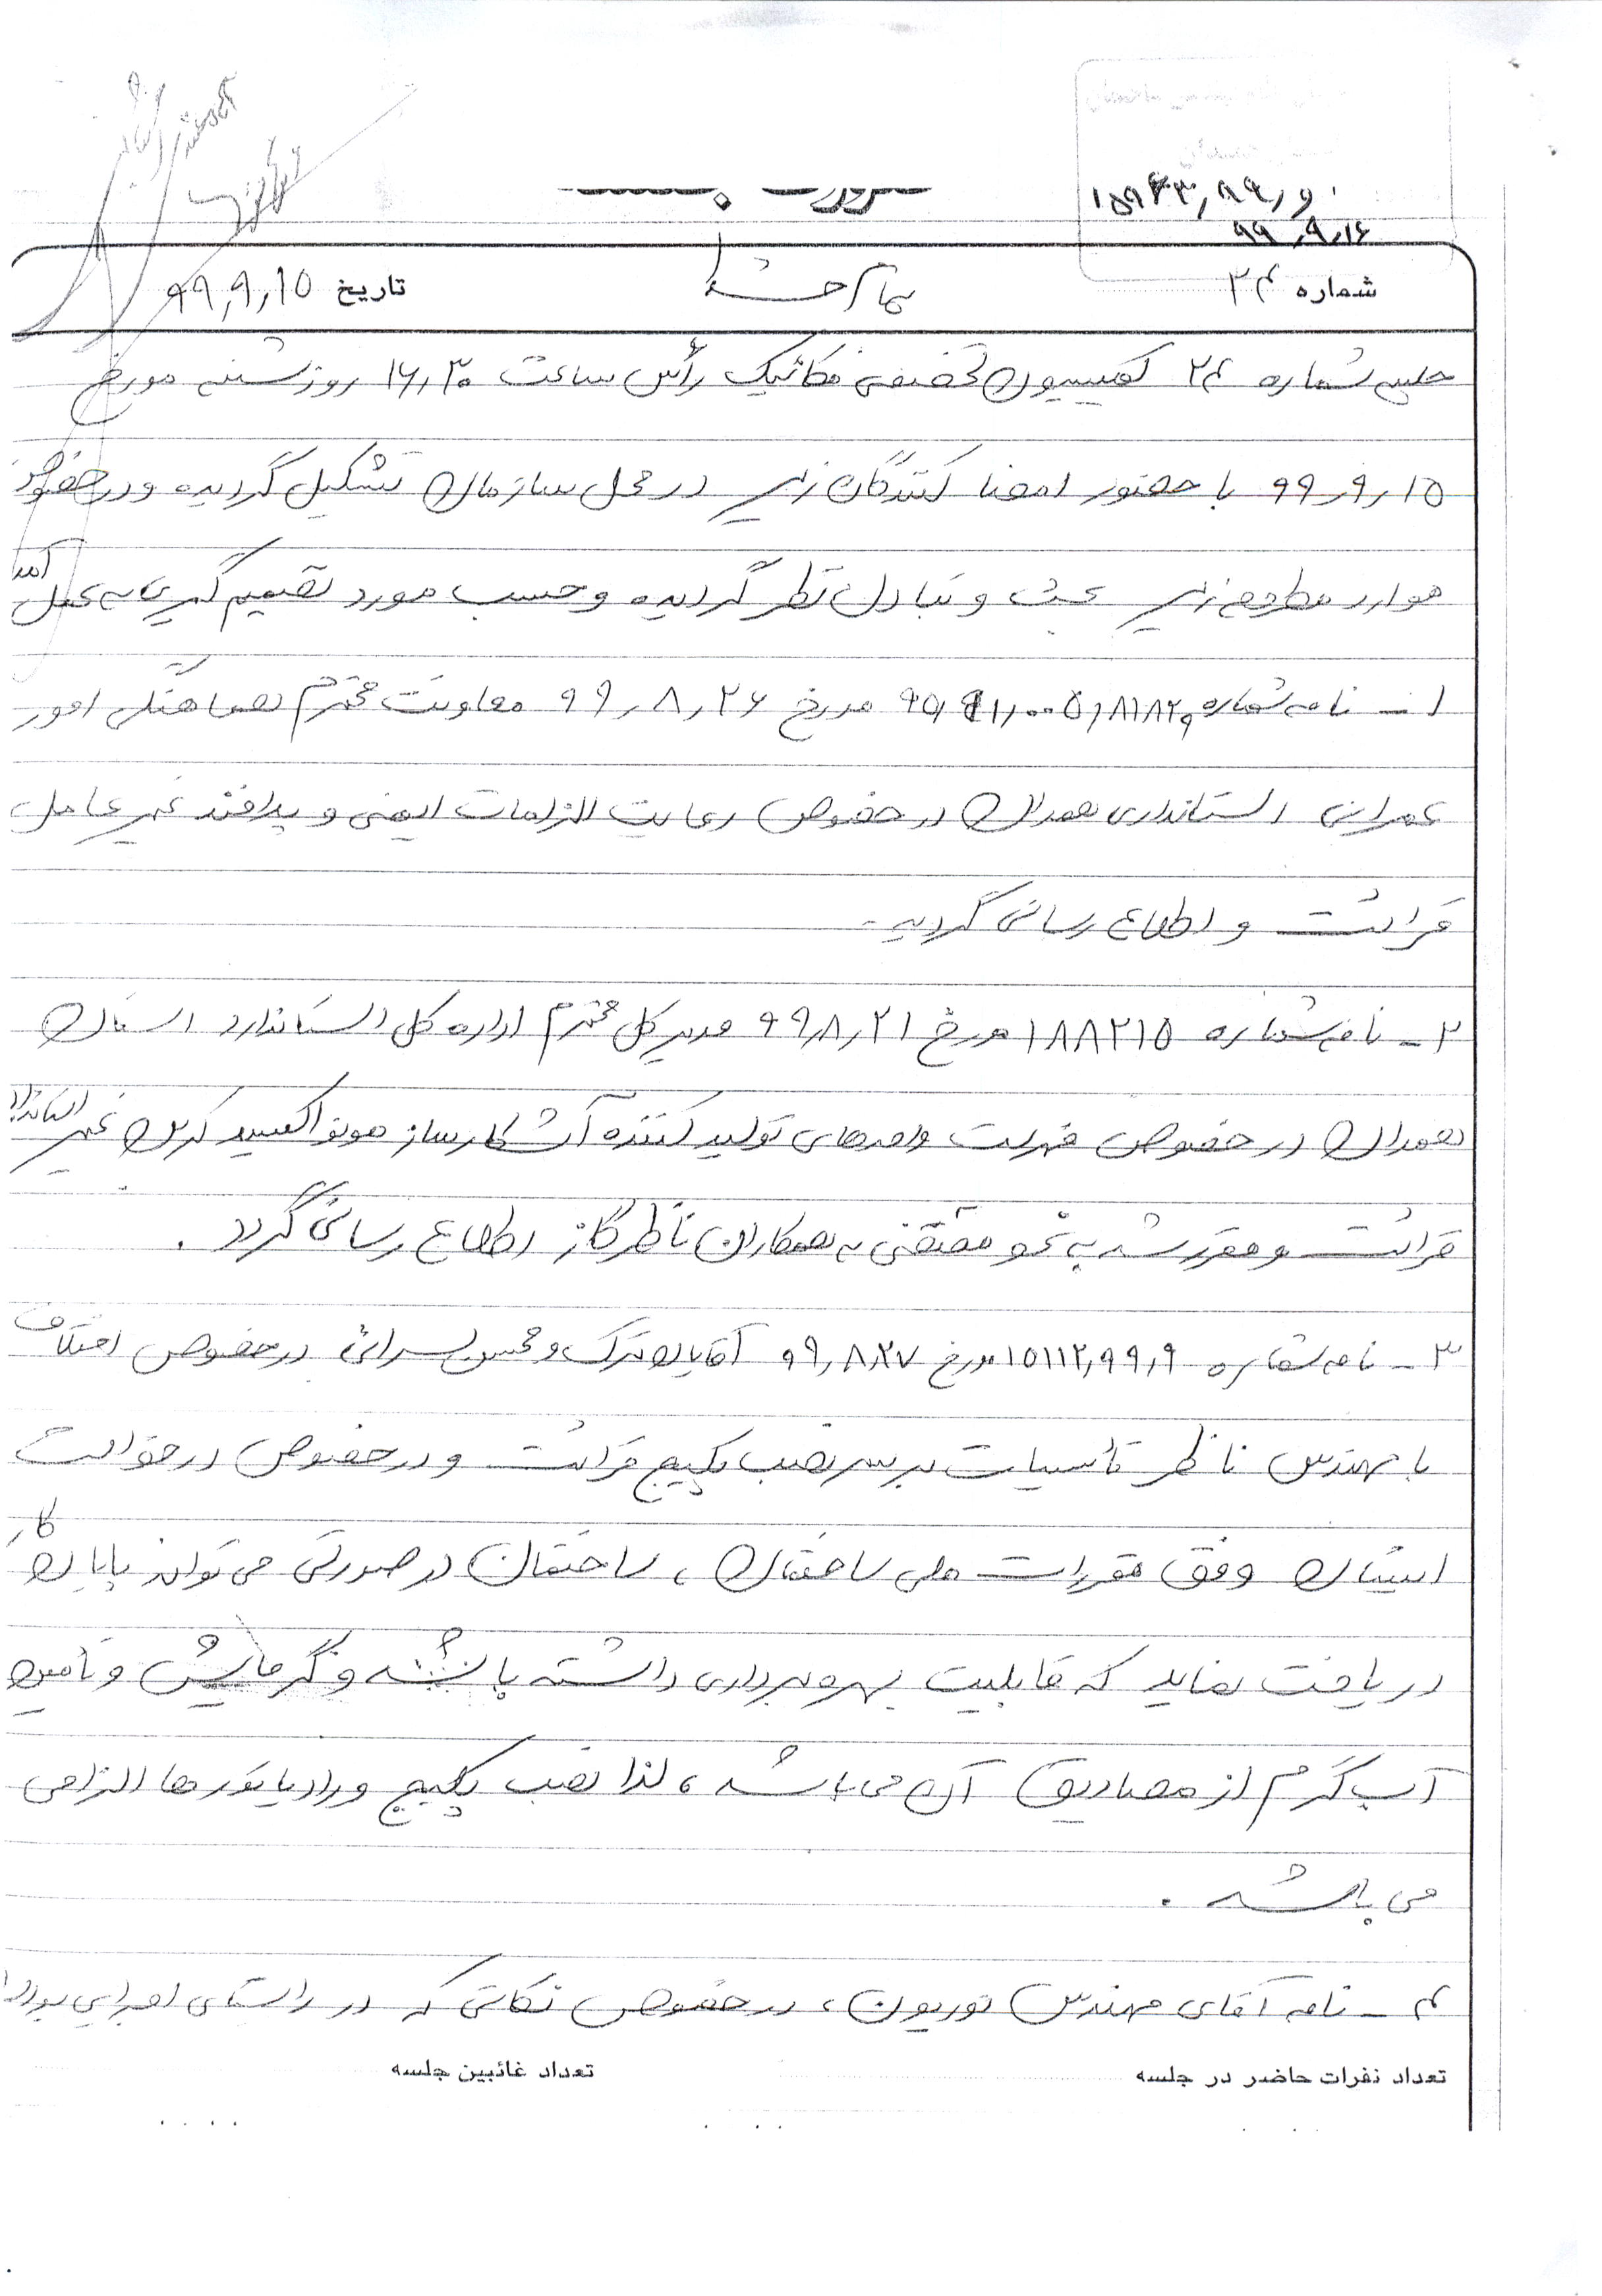 صورت جلسه
۱۵۹۴۳,۹۹,و
۹۹,۹,۱۶
شماره ۲۴
بنام خدا
تاریخ ۹۹,۹,۱۵
جلسه شماره ۲۴ کمیسیون تخصصی مکانیک رأس ساعت ۱۶,۳۰ روز شنبه مورخ
۹۹,۹,۱۵ با حضور امضا کنندگان زیر در محل سازمان تشکیل گردیده و در خصوص
موارد مطروحه زیر بحث و تبادل نظر گردیده و حسب مورد تصمیم گیری به عمل آمد
۱ـ نامه شماره مورخ ۹۹,۸,۲۶ معاونت محترم هماهنگی امور
عمرانی استانداری همدان در خصوص رعایت الزامات ایمنی و پدافند غیرعامل
قرائت و اطلاع رسانی گردید.
۲ـ نامه شماره ۱۸۸۲۱۵ مورخ ۹۹,۸,۲۱ مدیرکل محترم اداره کل استاندارد استان
همدان در خصوص فهرست واحدهای تولید کننده آشکارساز مونواکسید کربن غیر استاندارد
قرائت و مقرر شد به نحو مقتضی به همکاران ناظر گاز اطلاع رسانی گردد.
۳ـ نامه شماره ۱۵۱۱۲,۹۹,۹ مورخ ۹۹,۸,۲۷ آقایان ترک و محسن در خصوص اختلاف
با مهندس ناظر تأسیسات بر سر نصب پکیج قرائت و در خصوص درخواست
ایشان وفق مقررات ملی ساختمان، ساختمان در صورتی می تواند پایان کار
دریافت نماید که قابلیت بهره برداری داشته باشد و گرمایش و تأمین
آب گرم از مصادیق آن می باشد، لذا نصب پکیج و رادیاتورها الزامی
می باشد.
۴ـ نامه آقای مهندس نوریون، در خصوص نکاتی که در راستای اجرای
تعداد نفرات حاضر در جلسه
تعداد غائبین جلسه